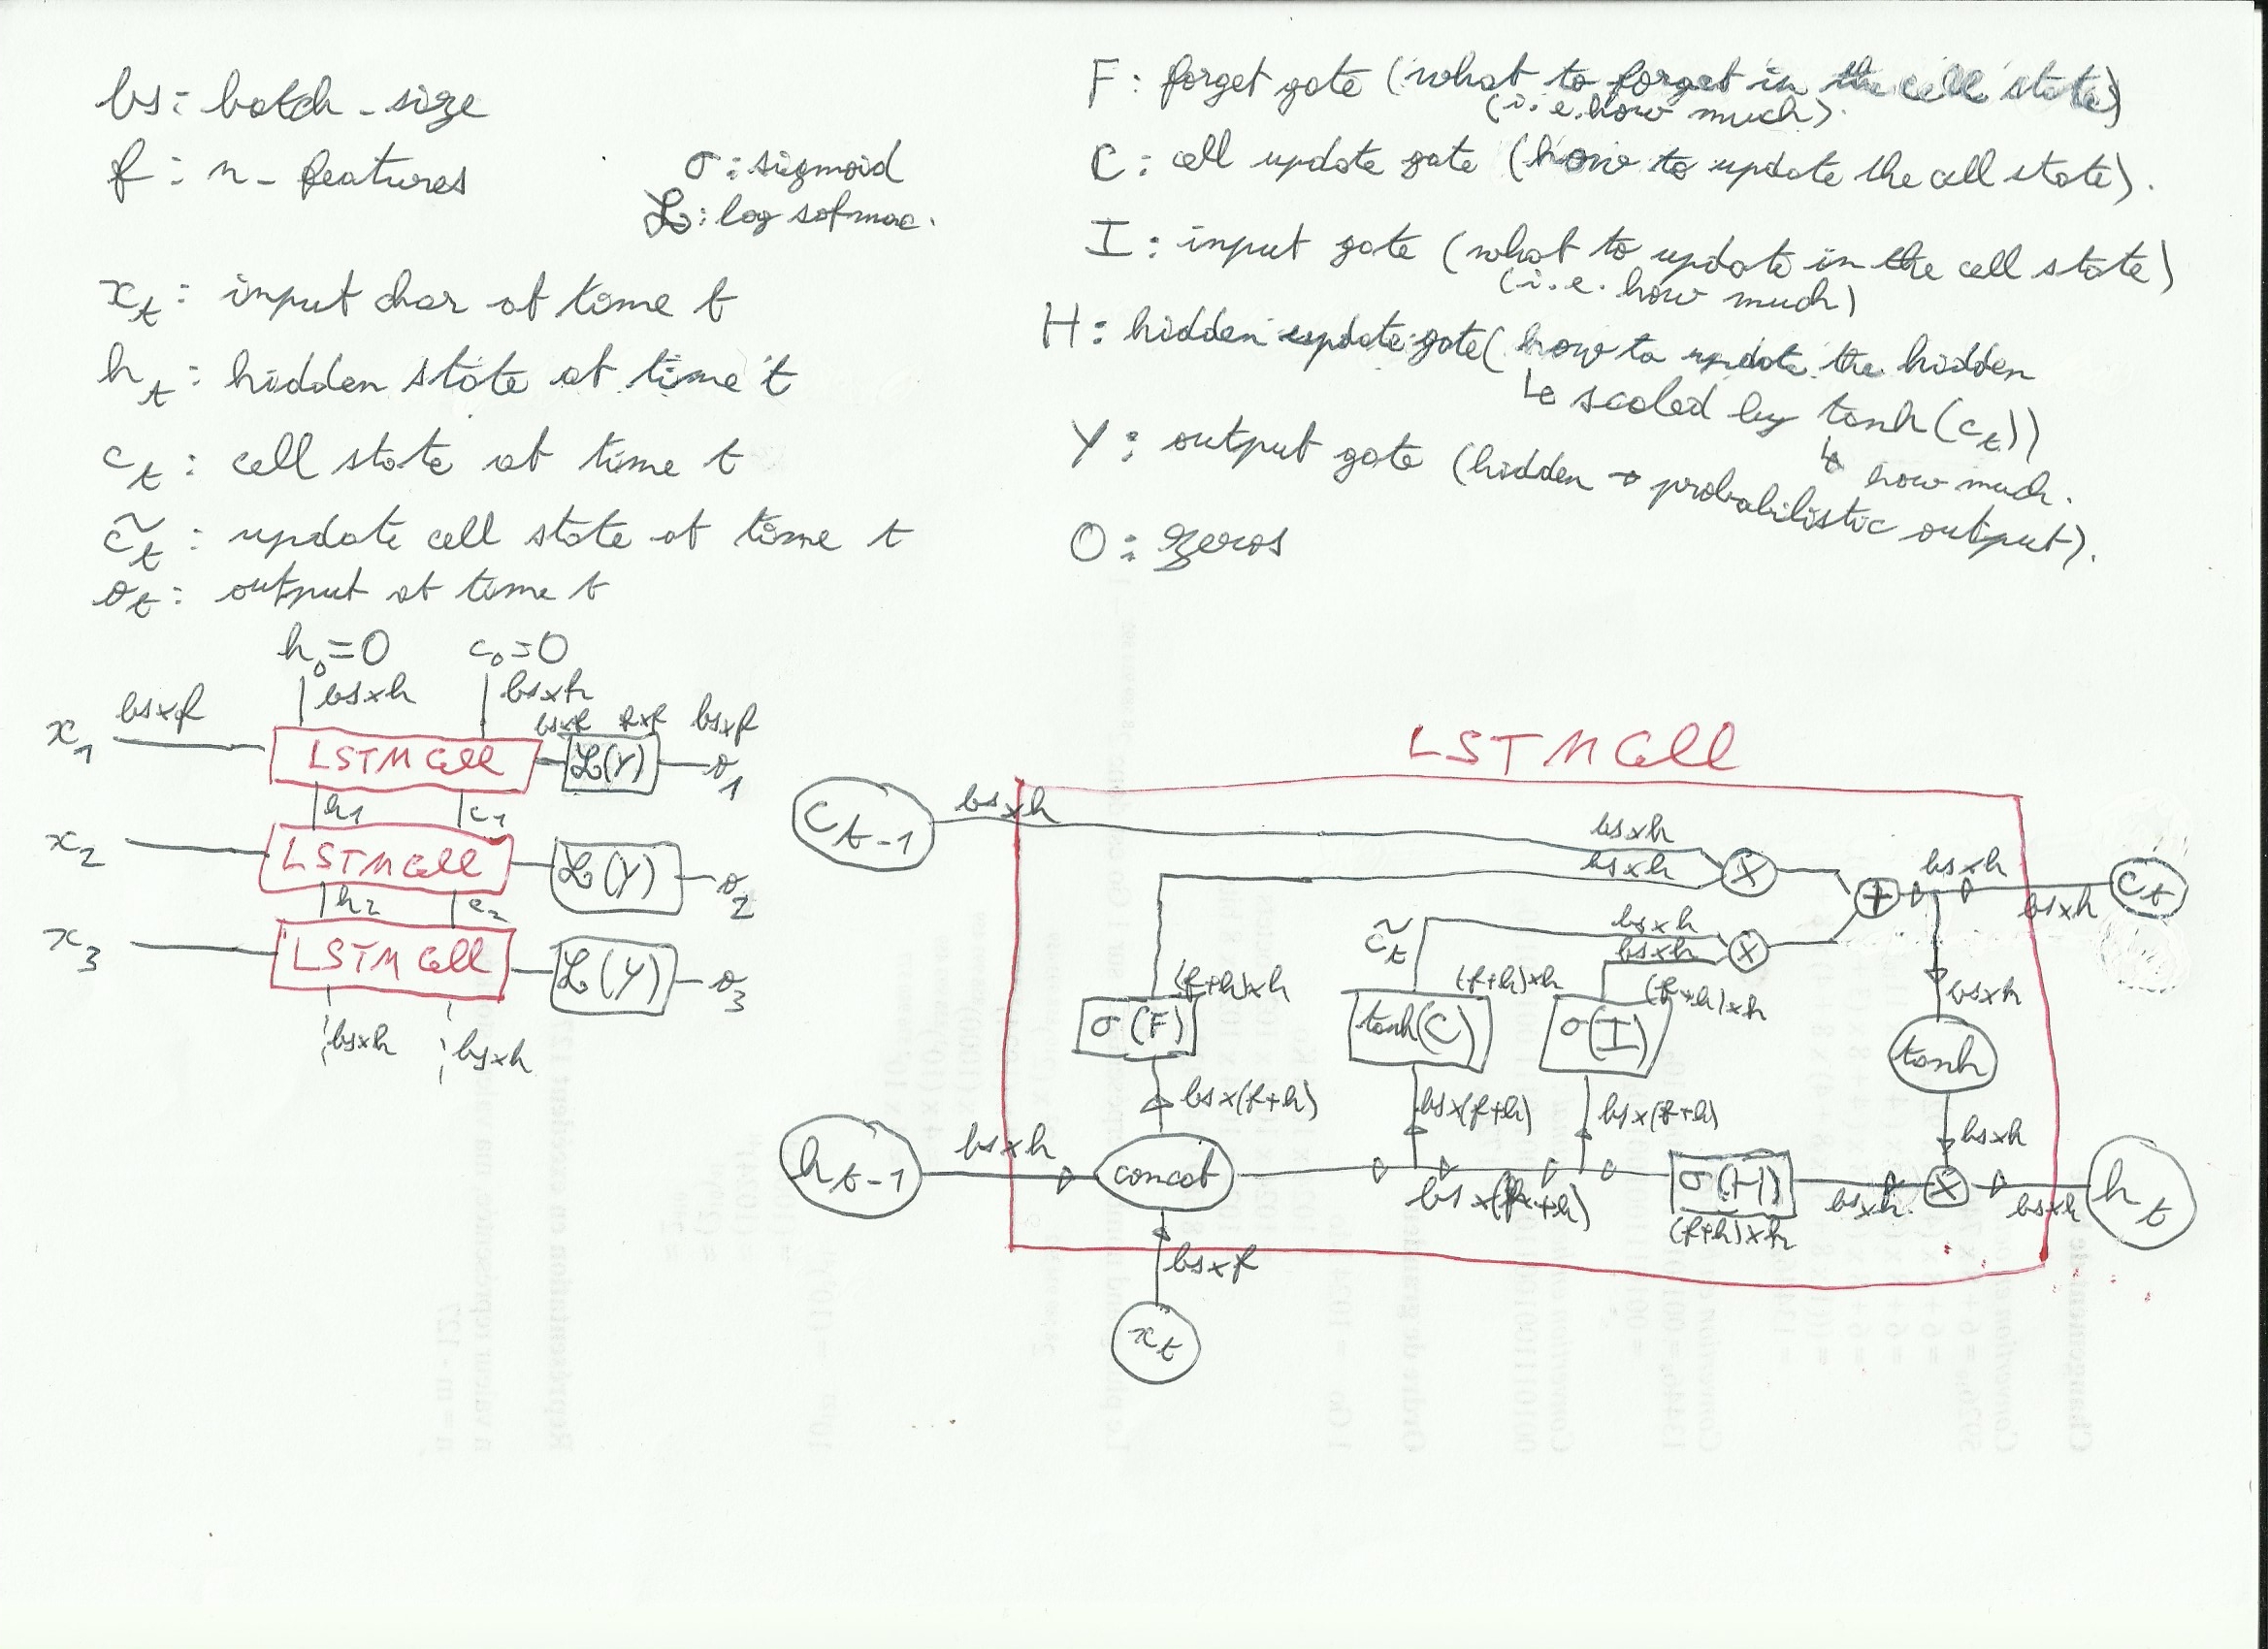 bs: batch_size
f: n_features
σ: sigmoid
ℒ: log sofmax.
x_t: input char at time t
h_t: hidden state at time t
c_t: cell state at time t
c̃_t: update cell state at time t
o_t: output at time t
F: forget gate (what to forget in the cell state)
(i.e. how much).
C: cell update gate (how to update the cell state).
I: input gate (what to update in the cell state)
(i.e. how much)
H: hidden update gate (how to update the hidden
↳ scaled by tanh(c_t))
↳ how much.
Y: output gate (hidden → probabilistic output).
O: zeros
h_0=0 c_0=0
bs×h bs×h
x_1 bs×f LSTM Cell ℒ(Y) bs×f o_1
h_1 c_1
x_2 LSTM Cell ℒ(Y) o_2
h_2 c_2
x_3 LSTM Cell ℒ(Y) o_3
bs×h bs×h
LSTM Cell
c_t-1 bs×h bs×h × bs×h c_t
bs×h + bs×h
c̃_t bs×h
bs×h ×
(f+h)×h (f+h)×h (f+h)×h bs×h
σ(F) tanh(C) σ(I) tanh
bs×(f+h) bs×(f+h) bs×(f+h) bs×h
h_t-1 bs×h concat bs×(f+h) σ(H) bs×h × bs×h h_t
(f+h)×h
bs×f
x_t